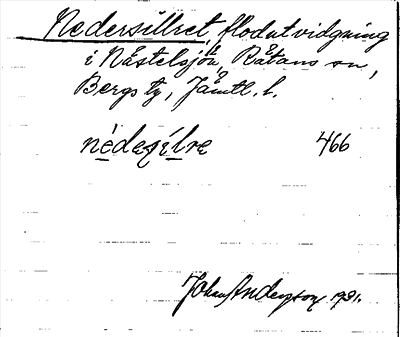 Nedersillret, flodutvidgning
i Nästelsjön, Rätans sn,
Bergs tg, Jämtl. l.
nédesílre 466
Johan Anderzson 1931.